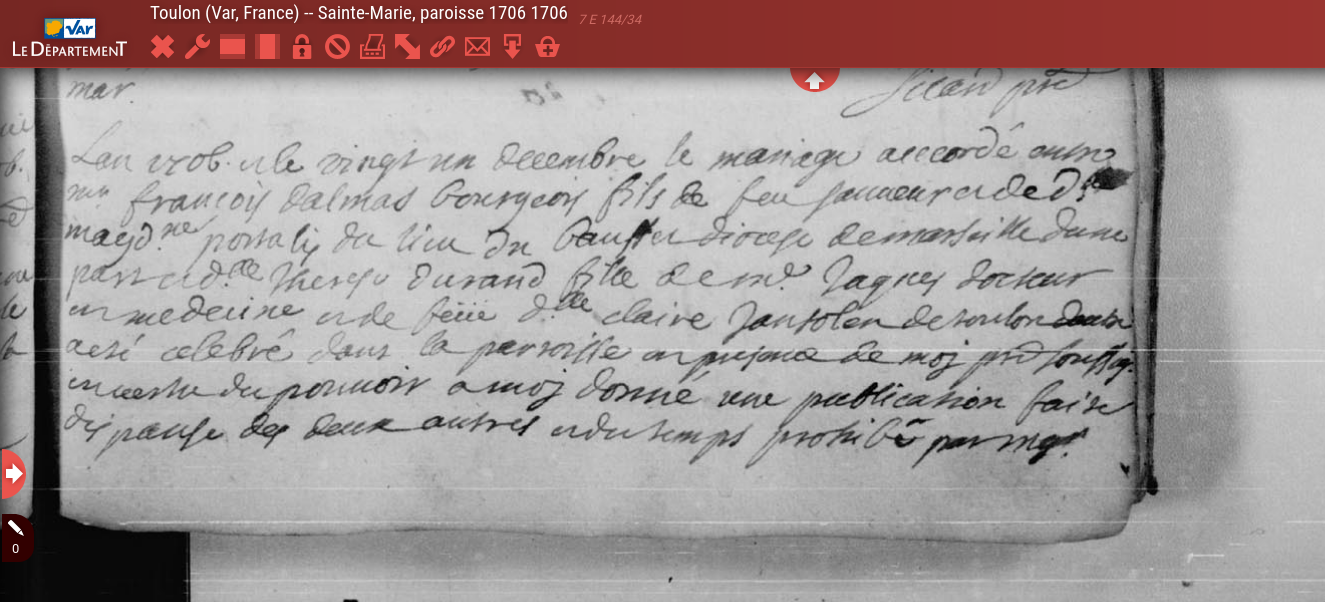 Toulon (Var, France) -- Sainte-Marie, paroisse 1706 1706
7 E 144/34
Var
LE DÉPARTEMENT
mar.
Sicard ptre
Lan 1706. et le vingt un decembre le mariage accordé entre
mr françois dalmas bourgeois fils de feu sauveur et de d.lle
magd.ne portalis du lieu du bausset diocese de marseille dune
part et d.lle Therese durand fille de mr. Jaques docteur
en medecine et de feüe d.lle claire Jansolen de toulon
a esté celebré dans la parroisse en presence de moy ptre soussig.
en vertu du pouvoir a moy donné une publication faite
dispense des deux autres et du temps prohibé par mgr
0